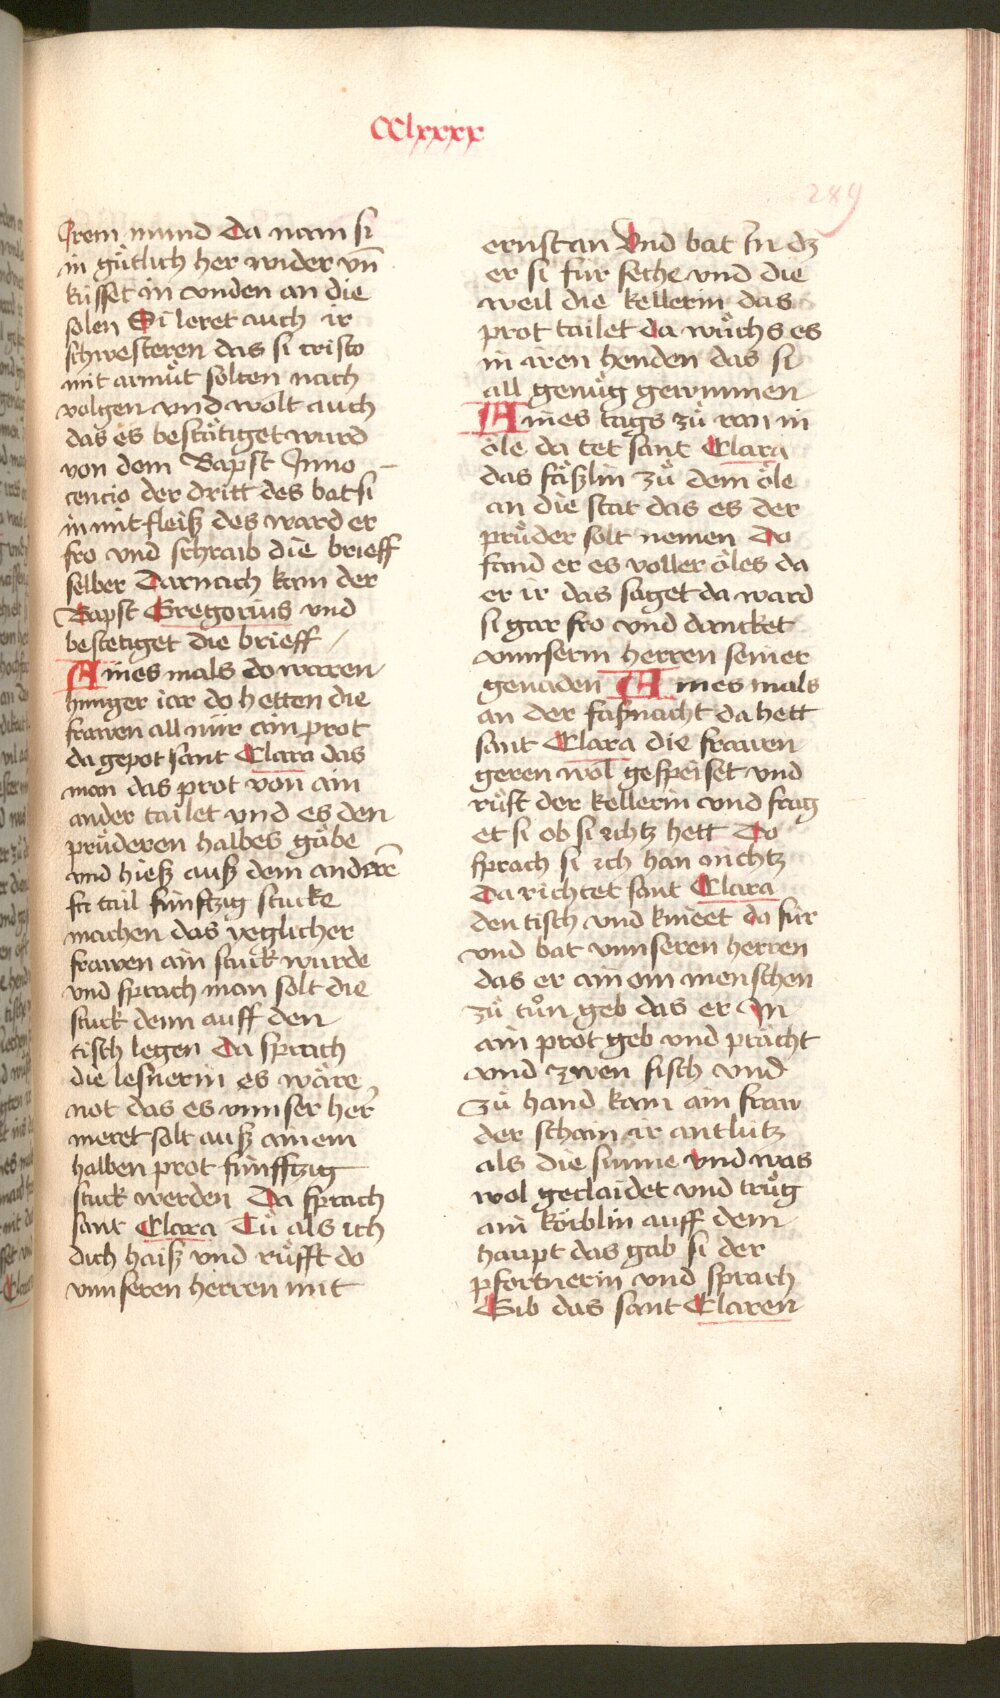 CClxxxx
289
Jrem mund Da nam si
in gůtlich her wider vn̄
küsset in vnden an die
solen Si leret auch ir
schwesteren das si cristo
mit armůt solten nach
volgen vnd wolt auch
das es bestätiget wurd
von dem Bapst Jnno
cencio der dritt des bat si
in mit fleiß des ward er
fro vnd schraib die brieff
selber Darnach kam der
Bapst Gregorius vnd
bestetiget die brieff
Aines mals do waren
hunger iar do hetten die
frawen all nür ain prot
da gepot sant Clara das
man das prot von ain
ander tailet vnd es den
prüderen halbes gäbe
vnd hieß auß dem anderē
tail fünftzig stucke
machen das yeglicher
frawen ain stuck wurde
vnd sprach man solt die
stuck denn auff den
tisch legen Da sprach
die lesnerin es wäre
not das es vnnser her
meret solt auß ainem
halben prot fünfftzig
stuck werden Da sprach
sant Clara Tů als ich
dich haiß vnd rüfft do
vnnseren herren mit
ernst an Vnd bat Jn dz
er si für sehe vnd die
weil die kellerin das
prot tailet da wůchs es
in iren henden das si
all genůg gewunnen
Aines tags zů ran in
öle da tet sant Clara
das fäßlin zů dem öle
an die stat das es der
průder solt nemen Do
fand er es voller öles da
er ir das saget da ward
si gar fro vnd dancket
vnnserm herren seiner
genaden Aines mals
an der faßnacht da hett
sant Clara die frawen
geren wol gespeiset vnd
růft der kellerin vnd frag
et si ob si ichtz hett Do
sprach si ich han nichtz
Da richtet sant Clara
den tisch vnd knieet da für
vnd bat vnnseren herren
das er ainem menschen
zů tůn geb das er Jn
ain prot geb vnd prächt
vnd zwen fisch vnd
zů hand kam ain fraw
der schain ir antlütz
als die sunne vnd was
wol geclaidet vnd trůg
ain körblin auff dem
haupt das gab si der
pfortnerin vnd sprach
Gib das sant Claren